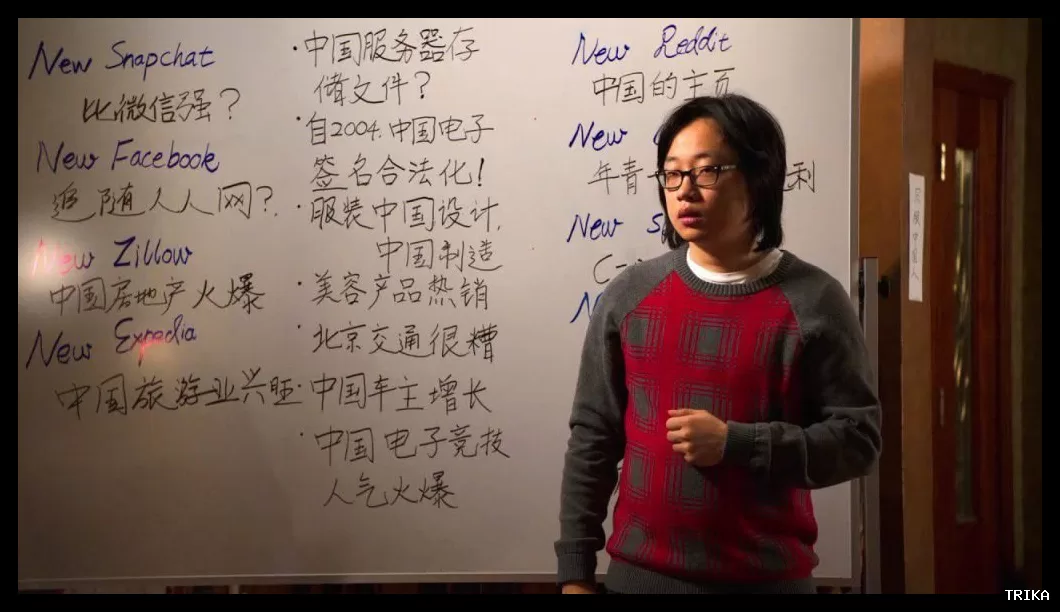 New Snapchat
比微信强?
New Facebook
追随人人网?
New Zillow
中国房地产火爆
New Expedia
中国旅游业兴旺
·中国服务器存
储文件?
·自2004.中国电子
签名合法化!
·服装中国设计,
中国制造
·美容产品热销
·北京交通很糟
·中国车主增长
·中国电子竞技
人气火爆
New Reddit
中国的主页
New
年青
利
New
C-
TRIKA